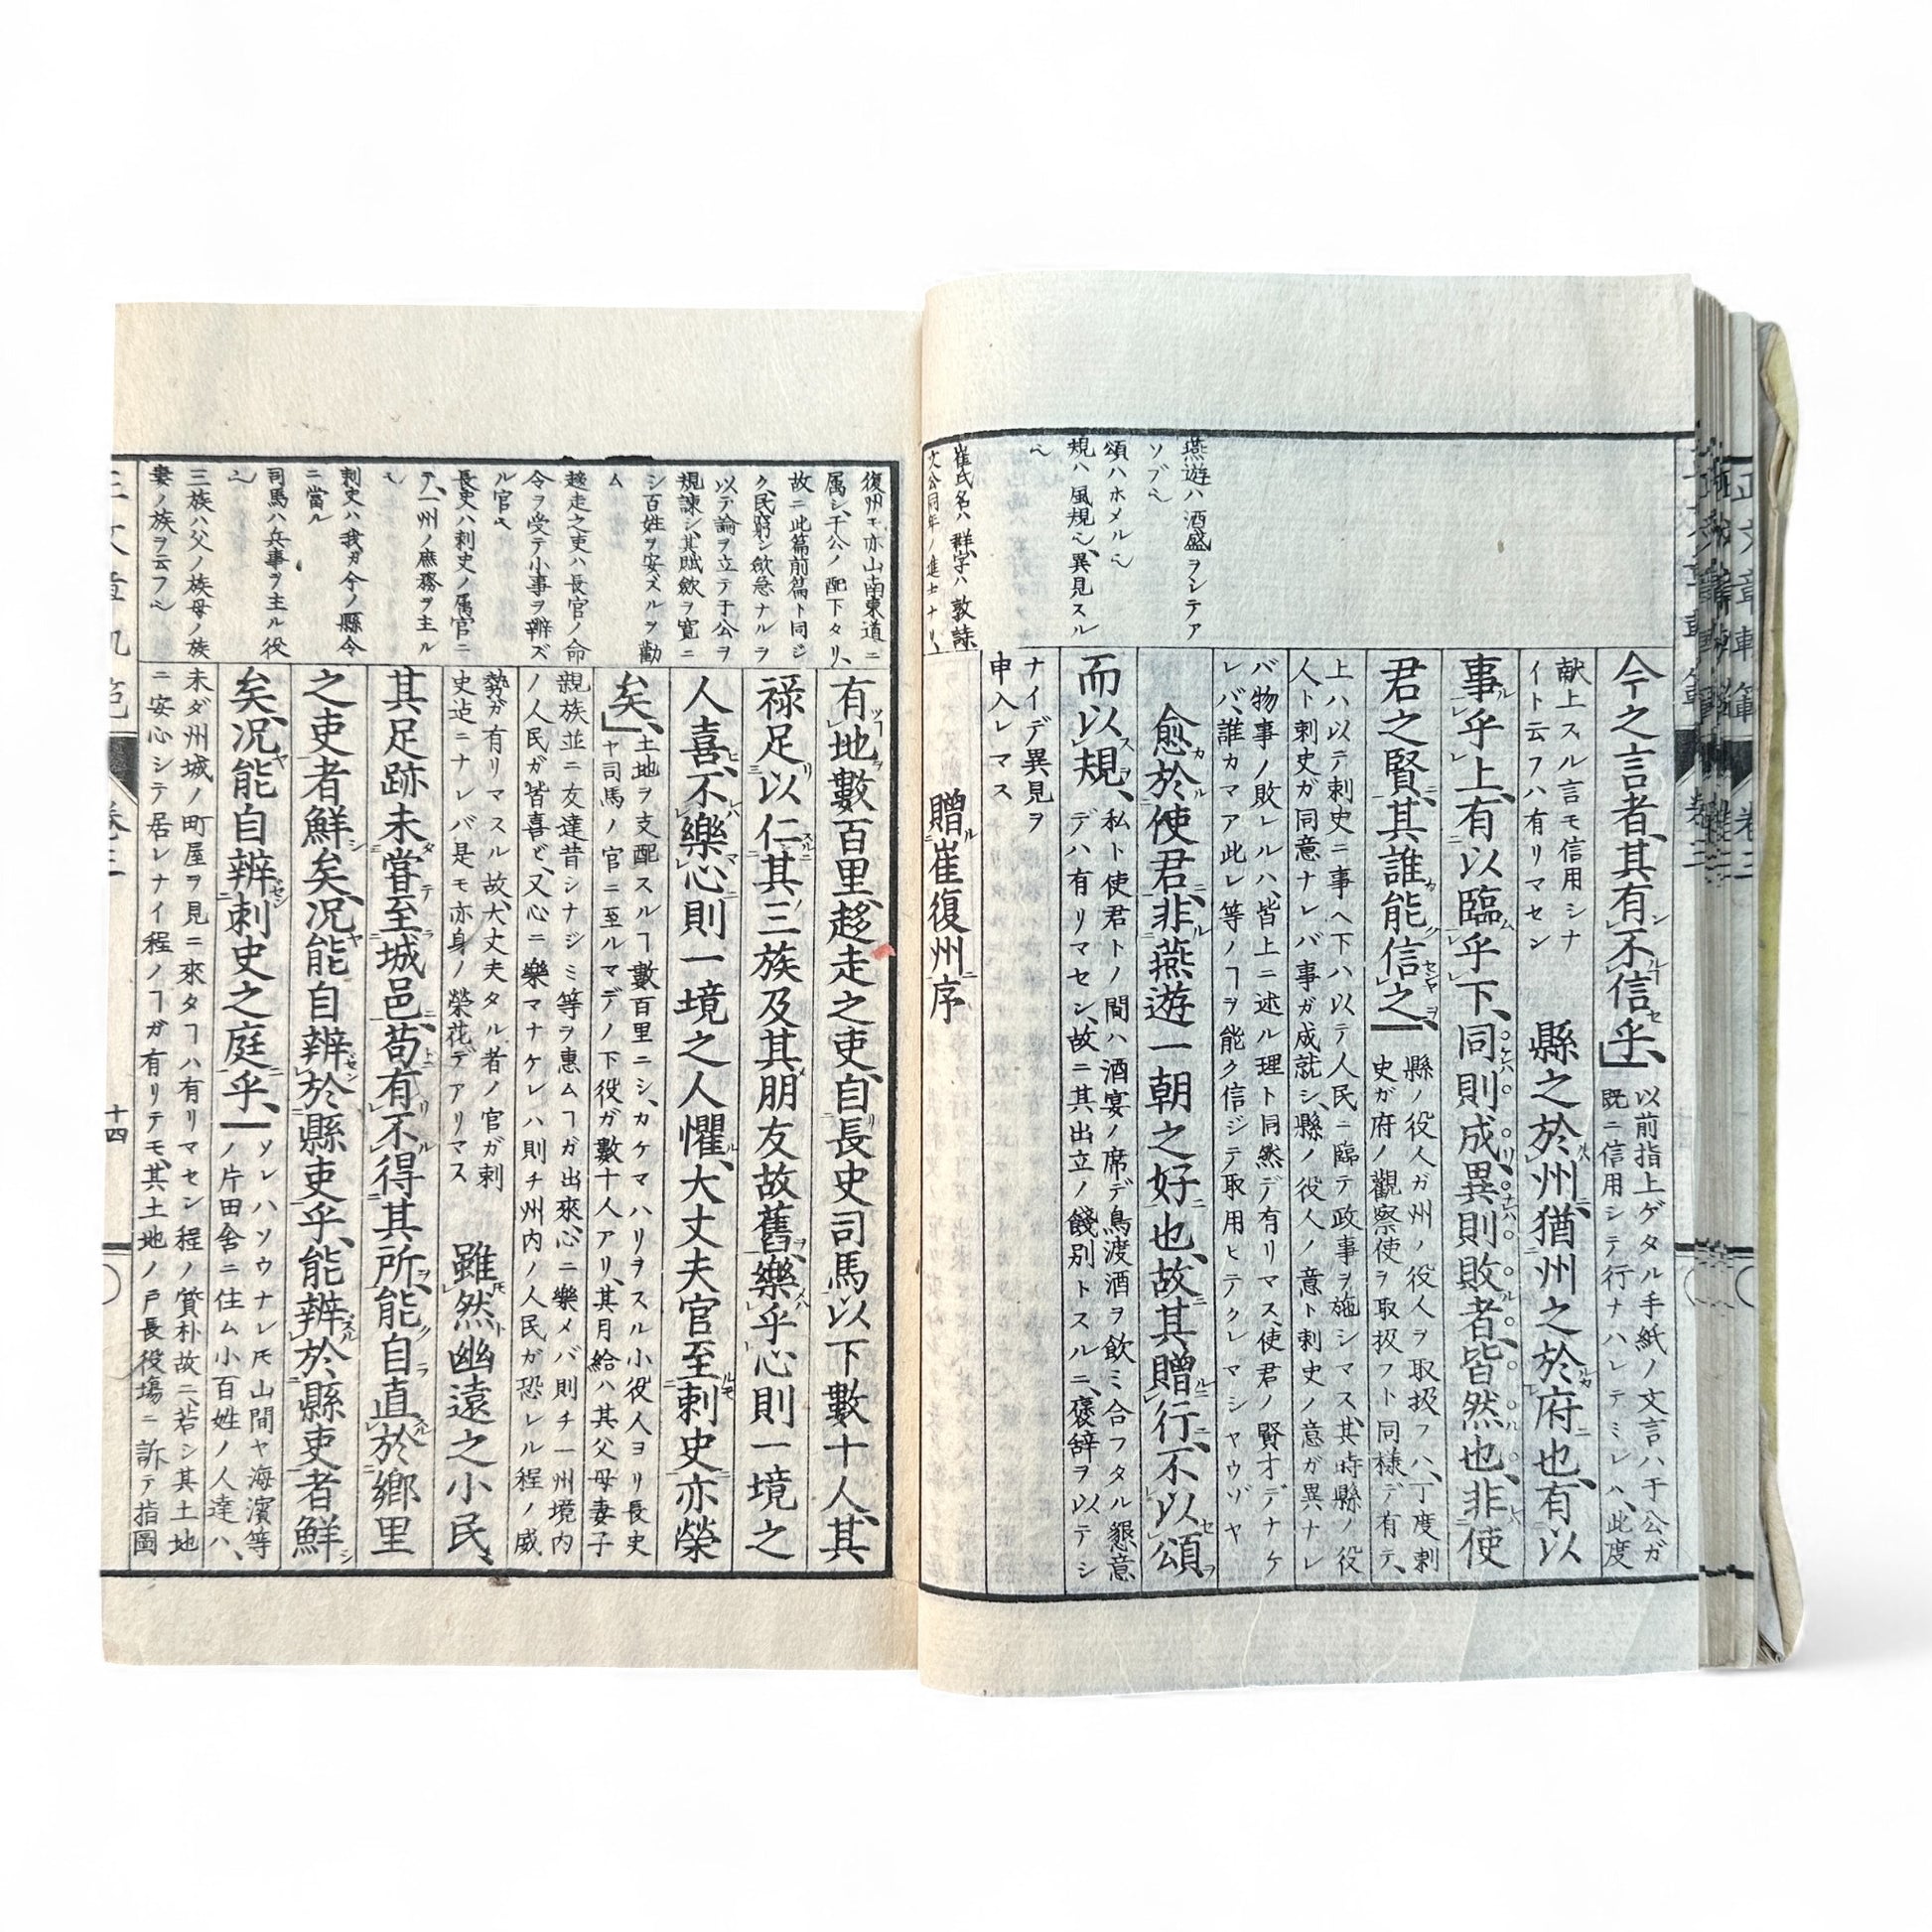 燕遊ハ酒盛ヲシテア
ソブヘ
頌ハホメルヘ
規ハ風規ヘ、異見スル
ヘ
崔氏名ハ群、字ハ敦詩
文公同年ノ進士ナリ、
今之言者、其有不信乎、
以前指上ゲタル手紙ノ文言ハ于公ガ
既ニ信用シテ行ナハレテミレハ、此度
献上スル言モ信用シナ
イト云フハ有リマセン
縣之於州、猶州之於府也、有以
事乎上、有以臨乎下、同則成異則敗者、皆然也、非使
君之賢、其誰能信之
縣ノ役人ガ州ノ役人ヲ取扱フハ、丁度刺
史ガ府ノ觀察使ヲ取扱フト同様デ有テ、
上ハ以テ刺史ニ事ヘ下ハ以テ人民ニ臨テ政事ヲ施シマス、其時縣ノ役
人ト刺史ガ同意ナレバ事ガ成就シ、縣ノ役人ノ意ト刺史ノ意ガ異ナレ
バ物事ノ敗レルハ、皆上ニ述ル理ト同然デ有リマス、使君ノ賢才デナケ
レバ、誰カマア此レ等ノヿヲ能ク信ジテ取用ヒテクレマシヤウゾヤ
愈於使君、非燕遊一朝之好也、故其贈行、不以頌
而以規、
私ト使君トノ間ハ酒宴ノ席デ鳥渡酒ヲ飲ミ合フタル懇意
デハ有リマセン、故ニ其出立ノ餞別トスルニ、褒辞ヲ以テシ
ナイデ異見ヲ
申入レマス
贈崔復州序
復州モ亦山南東道ニ
属シ、于公ノ配下タリ、
故ニ此篇前篇ト同ジ
ク、民窮シ斂急ナルヲ
以テ論ヲ立テ于公ヲ
規諫シ、其賦斂ヲ寛ニ
シ百姓ヲ安ズルヲ勸
ム
趍走之吏ハ長官ノ命
令ヲ受テ小事ヲ辨ズ
ル官ヘ
長史ハ刺史ノ属官ニ
テ、一州ノ庶務ヲ主ル
ヘ
刺史ハ我ガ今ノ縣令
ニ當ル
司馬ハ兵事ヲ主ル役
ヘ
三族ハ父ノ族母ノ族
妻ノ族ヲ云フヘ
有地數百里、趍走之吏、自長史司馬以下數十人、其
禄足以仁其三族及其朋友故舊、樂乎心則一境之
人喜、不樂心則一境之人懼、大丈夫官至刺史亦榮
矣、
土地ヲ支配スルヿ數百里ニシ、カケマハリヲスル小役人ヨリ長史
ヤ司馬ノ官ニ至ルマデノ下役ガ數十人アリ、其月給ハ其父母妻子
親族並ニ友達昔シナジミ等ヲ惠ムヿガ出來、心ニ樂メバ則チ一州境内
ノ人民ガ皆喜ビ、又心ニ樂マナケレハ則チ州内ノ人民ガ恐レル程ノ威
勢ガ有リマスル故、大丈夫タル者ノ官ガ刺
史迠ニナレバ是モ亦身ノ榮花デアリマス
雖然幽遠之小民、
其足跡未甞至城邑、苟有不得其所、能自直於鄉里
之吏者鮮矣、况能自辨於縣吏乎、能辨於縣吏者鮮
矣、况能自辨刺史之庭乎、
ソレハソウナレ𪜈山間ヤ海濱等
ノ片田舎ニ住ム小百姓ノ人達ハ、
未ダ州城ノ町屋ヲ見ニ來タヿハ有リマセン程ノ質朴故ニ、若シ其土地
ニ安心シテ居レナイ程ノヿガ有リテモ、其土地ノ戸長役塲ニ訴テ指圖
卷三
十四